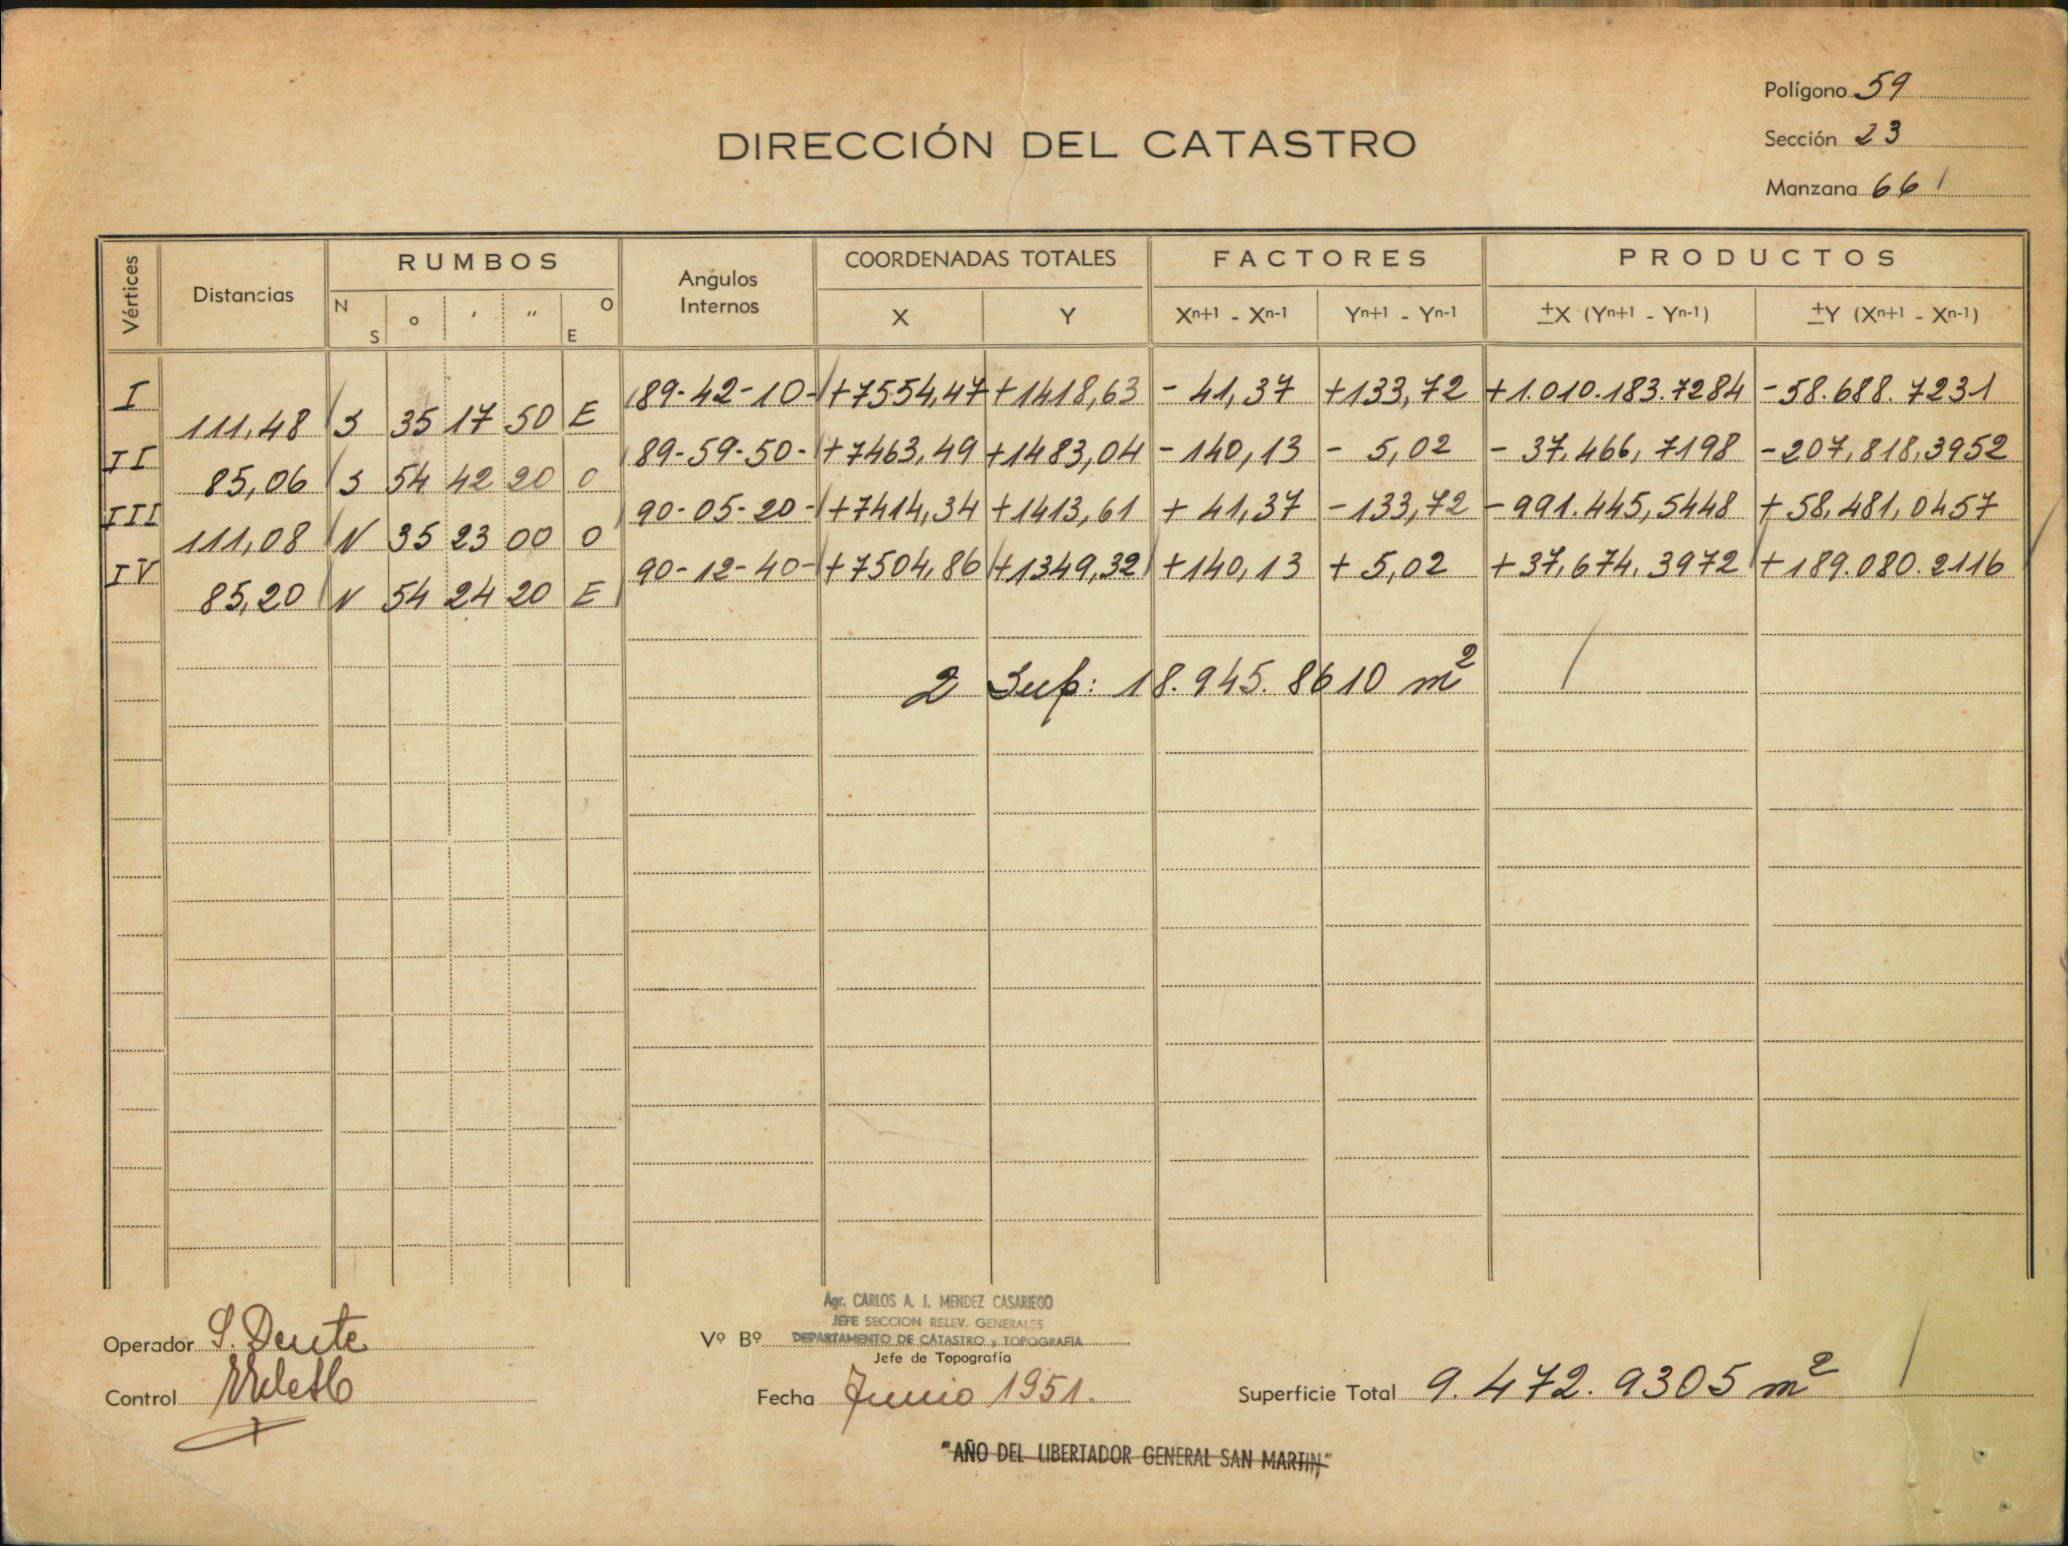 Polígono 59
DIRECCIÓN DEL CATASTRO
Sección 23
Manzana 66
Vértices Distancias RUMBOS Angulos Internos COORDENADAS TOTALES FACTORES PRODUCTOS
N S o ' " O E X Y Xn+1 - Xn-1 Yn+1 - Yn-1 ±X (Yn+1 - Yn-1) ±Y (Xn+1 - Xn-1)
I 89-42-10- +7554,47 +1418,63 - 41,37 +133,72 +1.010.183.7284 -58.688.7231
111,48 S 35 17 50 E
II 89-59-50- +7463,49 +1483,04 -140,13 - 5,02 - 37.466,7198 -207,818,3952
85,06 S 54 42 20 O
III 90-05-20- +7414,34 +1413,61 + 41,37 -133,72 -991.445,5448 +58.481,0457
111,08 N 35 23 00 O
IV 90-12-40- +7504,86 +1349,32 +140,13 + 5,02 +37,674,3972 +189.080.2116
85,20 N 54 24 20 E
2 Sup: 18.945.8610 m²
Agr. CARLOS A. J. MENDEZ CASARIEGO
JEFE SECCION RELEV. GENERALES
Operador S. Dente
Vº Bº DEPARTAMENTO DE CATASTRO y TOPOGRAFIA
Jefe de Topografía
Control
Fecha Junio 1951.
Superficie Total 9.472.9305 m²
"AÑO DEL LIBERTADOR GENERAL SAN MARTIN"